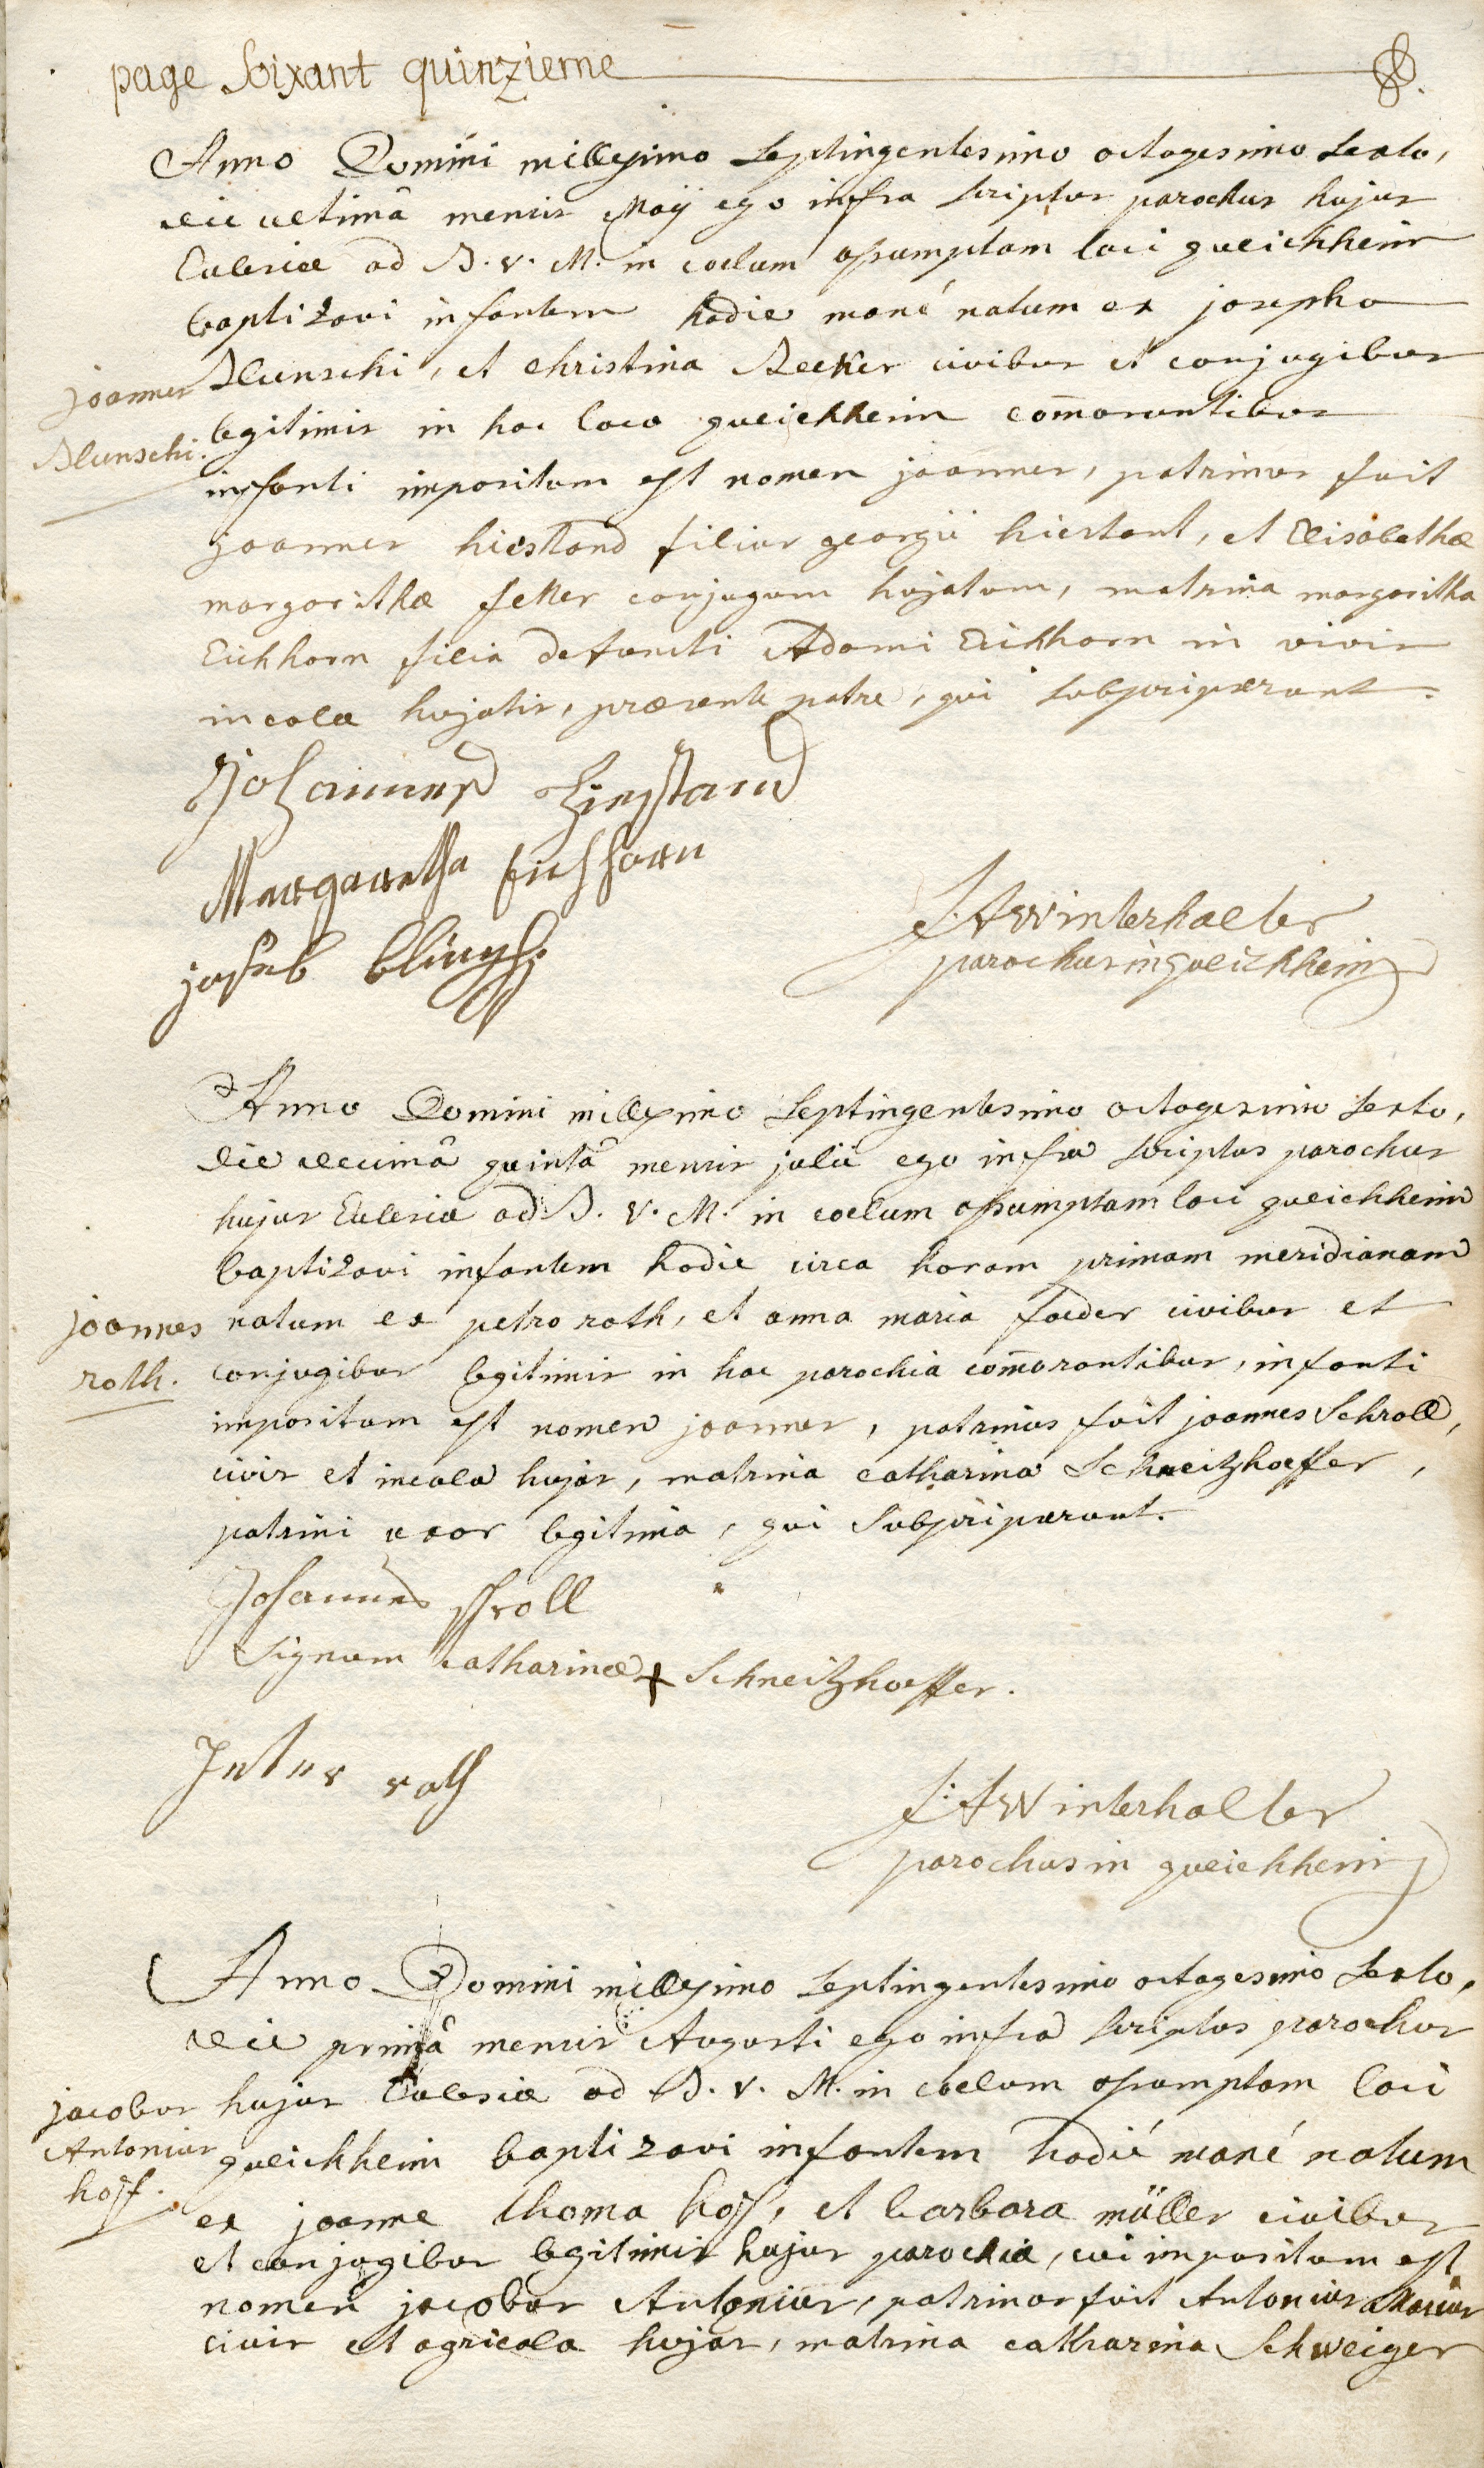 page soixant quinzieme
Anno Domini millesimo septingentesimo octogesimo sexto,
die ultimâ mensis Maÿ ego infra scriptus parochus hujus
Ecclesiæ ad B. V. M. in coelum assumptam loci queichheim
baptizavi infantem hodie mané natum ex josepho
joannes
Blunschi.
Blunschi, et christina Becker civibus et conjugibus
legitimis in hoc loco queichheim com̄orantibus
infanti impositum est nomen joannes, patrinus fuit
joannes hiestand filius georgii hiestant, et Elisabethæ
margarithæ feker conjugum hujatum, matrina margaritha
Eichhorn filia defuncti Adami Eichhorn in vivis
incolæ hujatis, præsente patre, qui subscripserunt.
Johannes Hiestand
Margaretha Eichhorn
joseb blunschi
F. A Winterhalter
parochus in queichheim
Anno Domini millesimo septingentesimo octogesimo sexto,
die decimâ quintâ mensis julii ego infra scriptus parochus
hujus Ecclesiæ ad B. V. M. in coelum assumptam loci queichheim
baptizavi infantem hodie circa horam primam meridianam
joannes
roth.
natum ex petro roth, et anna maria fader civibus et
conjugibus legitimis in hac parochia com̄orantibus, infanti
impositum est nomen joannes, patrinus fuit joannes Schroll,
civis et incola hujas, matrina catharina Schneitzhoeffer,
patrini uxor legitima, qui subscripserunt.
Johannes schroll
Signum catharinæ + Schneitzhoeffer.
Peter roth
F. A Winterhalter
parochus in queichheim
Anno Domini millesimo septingentesimo octogesimo sexto,
die primâ mensis Augusti ego infra scriptus parochus
jacobus
Antonius
hoff.
hujus Ecclesiæ ad B. V. M. in coelum assumptam loci
queichheim baptizavi infantem hodié mané natum
ex joanne thoma hoff, et barbara müller civibus
et conjugibus legitimis hujus parochiæ, cui impositum est
nomen jacobus Antonius, patrinus fuit Antonius
civis et agricola hujas, matrina catharina Schweiger